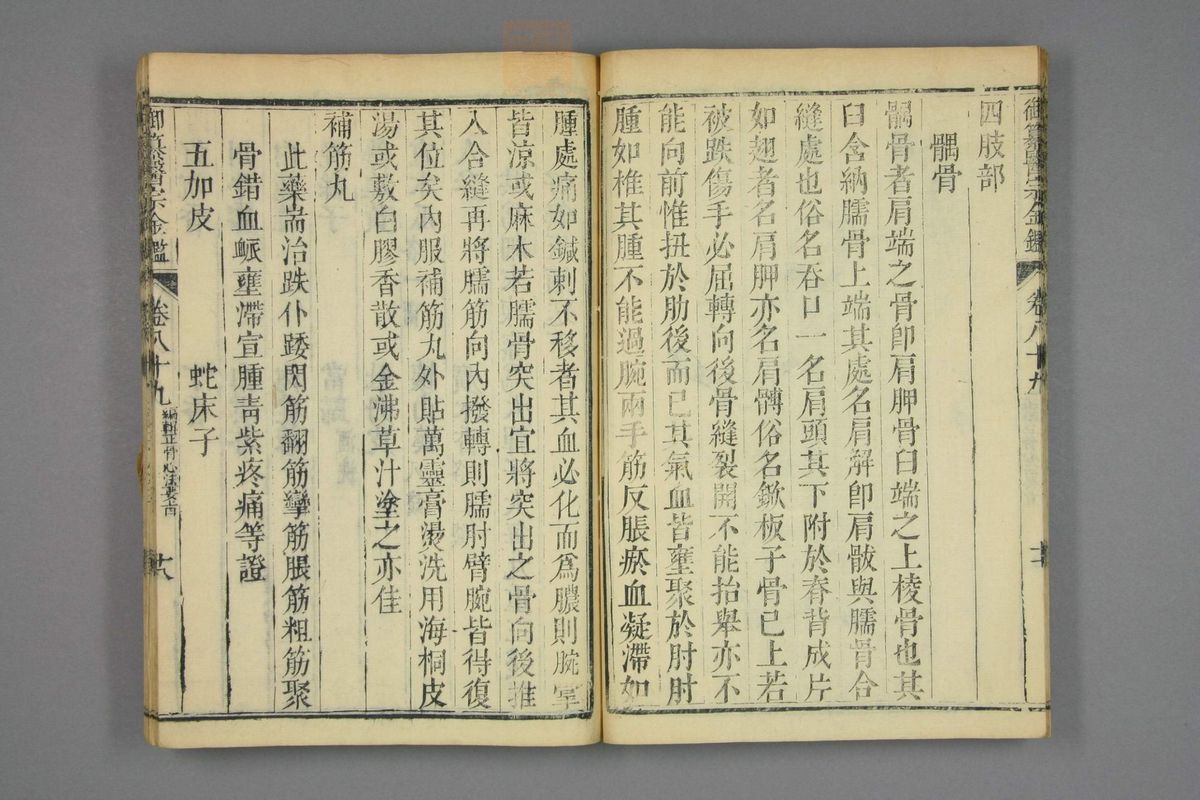 御纂醫宗金鑑 卷八十九
四肢部
髃骨
髃骨者肩端之骨卽肩胛骨臼端之上棱骨也其
臼含納臑骨上端其處名肩解卽肩骸與臑骨合
縫處也俗名吞口一名肩頭其下附於脊背成片
如翅者名肩胛亦名肩髆俗名鍁板子骨已上若
被跌傷手必屈轉向後骨縫裂開不能抬舉亦不
能向前惟扭於肋後而已其氣血皆壅聚於肘肘
腫如椎其腫不能過腕兩手筋反脹瘀血凝滯如
腫處痛如鍼刺不移者其血必化而爲膿則腕掌
皆涼或麻木若臑骨突出宜將突出之骨向後推
入合縫再將臑筋向內撥轉則臑肘臂腕皆得復
其位矣內服補筋丸外貼萬靈膏燙洗用海桐皮
湯或敷白膠香散或金沸草汁塗之亦佳
補筋丸
此藥耑治跌仆踒閃筋翻筋攣筋脹筋粗筋聚
骨錯血䘑壅滯宣腫靑紫疼痛等證
五加皮 蛇床子
御纂醫宗金鑑 卷八十九 編輯正骨心法要旨